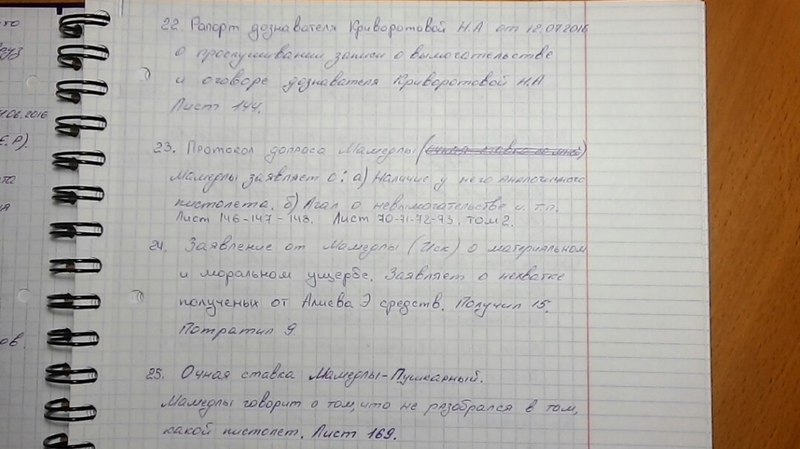 22. Рапорт дознавателя Криворотовой Н.А от 12.07.2016
о прослушивании записи о вымогательстве
и оговоре дознавателя Криворотовой Н.А
Лист 144.
23. Протокол допроса Мамедлы (очная ставка со мной)
Мамедлы заявляет о: а) Наличие у него аналогичного
пистолета. б) Агал о невымогательстве и. т.п.
Лист 146-147-148. Лист 70-71-72-73. том 2.
24. Заявление от Мамедлы (Иск) о материальном
и моральном ущербе. Заявляет о нехватке
полученых от Алиева Э средств. Получил 15.
Потратил 9.
25. Очная ставка Мамедлы-Пушкарный.
Мамедлы говорит о том, что не разобрался в том,
какой пистолет. Лист 169.
06.2016
Е.Р).
ов.